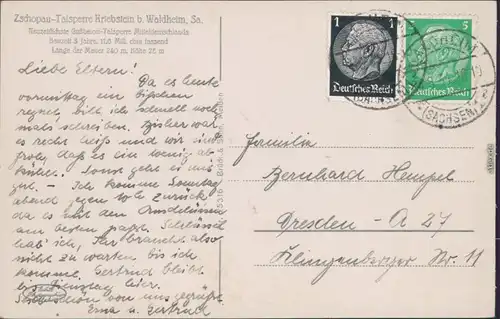 Zschopau-Talsperre Kriebstein b. Waldheim, Sa.
Neuzeitlichste Großraum-Talsperre Mitteldeutschlands
Bauzeit 3 Jahre, 11,6 Mill. cbm fassend
Länge der Mauer 240 m, Höhe 28 m
Liebe Eltern!
Da es heute
vormittag ein bißchen
regnet, will ich schnell noch
mals schreiben. Bisher war
es recht heiß und wir sind
froh, daß es ein wenig ab
kühlt. Sonst geht es uns
gut. – Ich komme Sonntag
abend gegen zurück
da es mit den Anschlüssen
am besten paßt. Schlüssel
hab' ich, Ihr braucht also
nicht zu warten bis ich
komme. Gertrud bleibt
bis Dienstag hier.
Seid schön von uns gegrüßt
Erna u. Gertrud
Brück & Sohn, Meißen
1
Deutsches Reich
5
Deutsches Reich
(SACHSEN)
Familie
Bernhard Hempel
Dresden - A 27
Klingenberger Str. 11